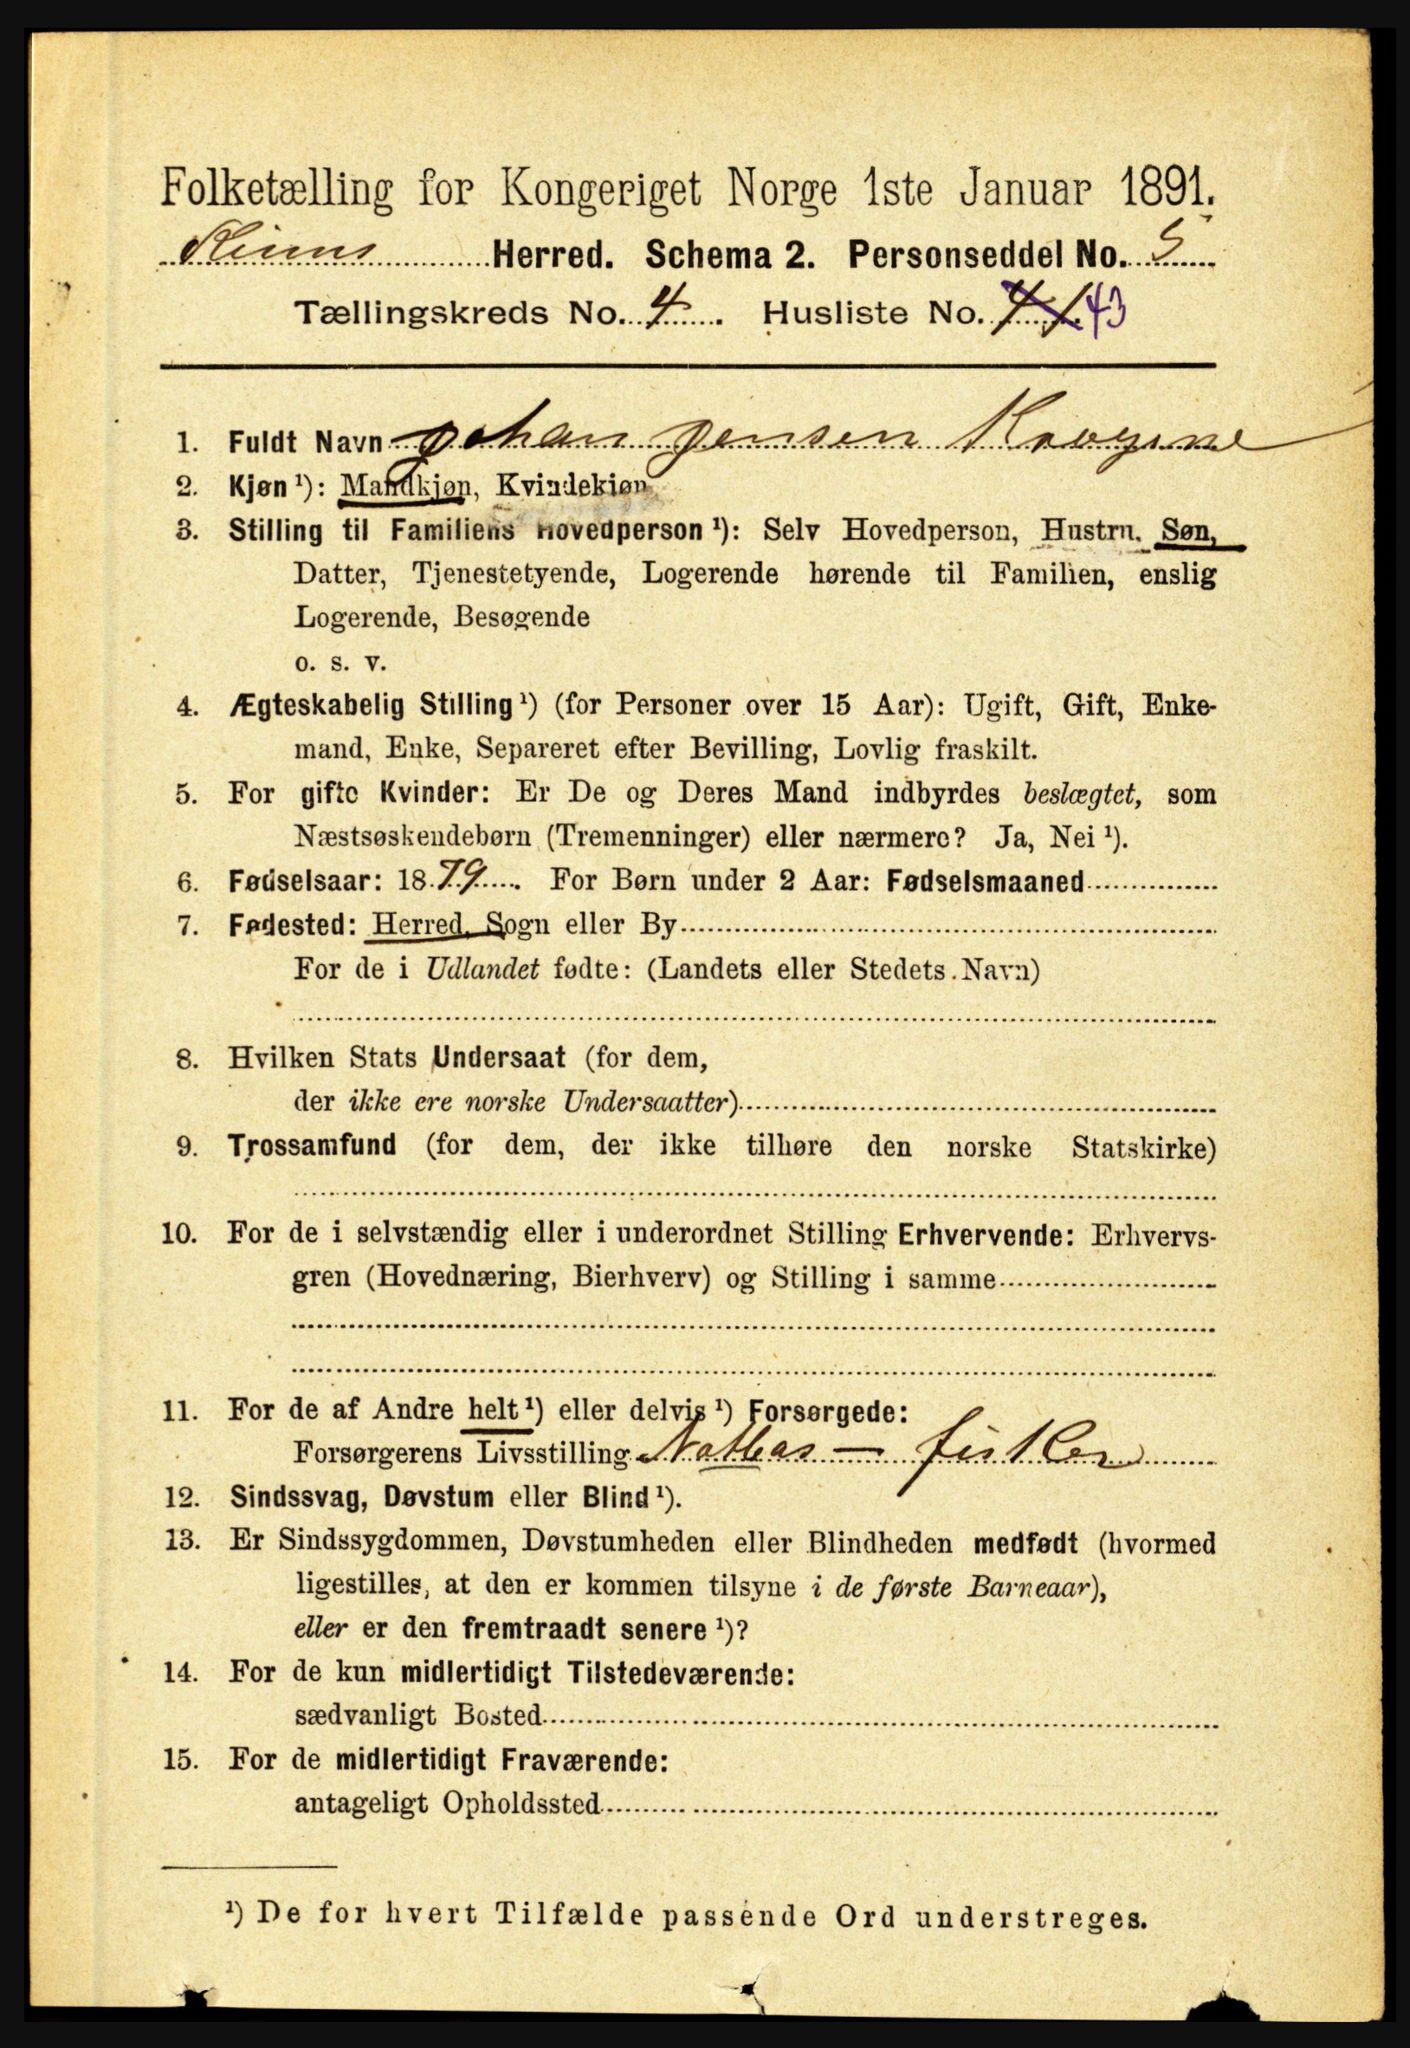 Folketælling for Kongeriget Norge 1ste Januar 1891.
Herred. Schema 2. Personseddel No. 5
Tællingskreds No. 4. Husliste No. 41. 43
1. Fuldt Navn Johan Jensen
2. Kjøn ¹): Mandkjøn, Kvindekjøn
3. Stilling til Familiens Hovedperson ¹): Selv Hovedperson, Hustru, Søn,
Datter, Tjenestetyende, Logerende hørende til Familien, enslig
Logerende, Besøgende
o. s. v.
4. Ægteskabelig Stilling ¹) (for Personer over 15 Aar): Ugift, Gift, Enke-
mand, Enke, Separeret efter Bevilling, Lovlig fraskilt.
5. For gifte Kvinder: Er De og Deres Mand indbyrdes beslægtet, som
Næstsøskendebørn (Tremenninger) eller nærmere? Ja, Nei ¹).
6. Fødselsaar: 1879. For Børn under 2 Aar: Fødselsmaaned
7. Fødested: Herred, Sogn eller By
For de i Udlandet fødte: (Landets eller Stedets Navn)
8. Hvilken Stats Undersaat (for dem,
der ikke ere norske Undersaatter)
9. Trossamfund (for dem, der ikke tilhøre den norske Statskirke)
10. For de i selvstændig eller i underordnet Stilling Erhvervende: Erhvervs-
gren (Hovednæring, Bierhverv) og Stilling i samme
11. For de af Andre helt ¹) eller delvis ¹) Forsørgede:
Forsørgerens Livsstilling - fisker
12. Sindssvag, Døvstum eller Blind ¹).
13. Er Sindssygdommen, Døvstumheden eller Blindheden medfødt (hvormed
ligestilles, at den er kommen tilsyne i de første Barneaar),
eller er den fremtraadt senere ¹)?
14. For de kun midlertidigt Tilstedeværende:
sædvanligt Bosted
15. For de midlertidigt Fraværende:
antageligt Opholdssted
¹) De for hvert Tilfælde passende Ord understreges.